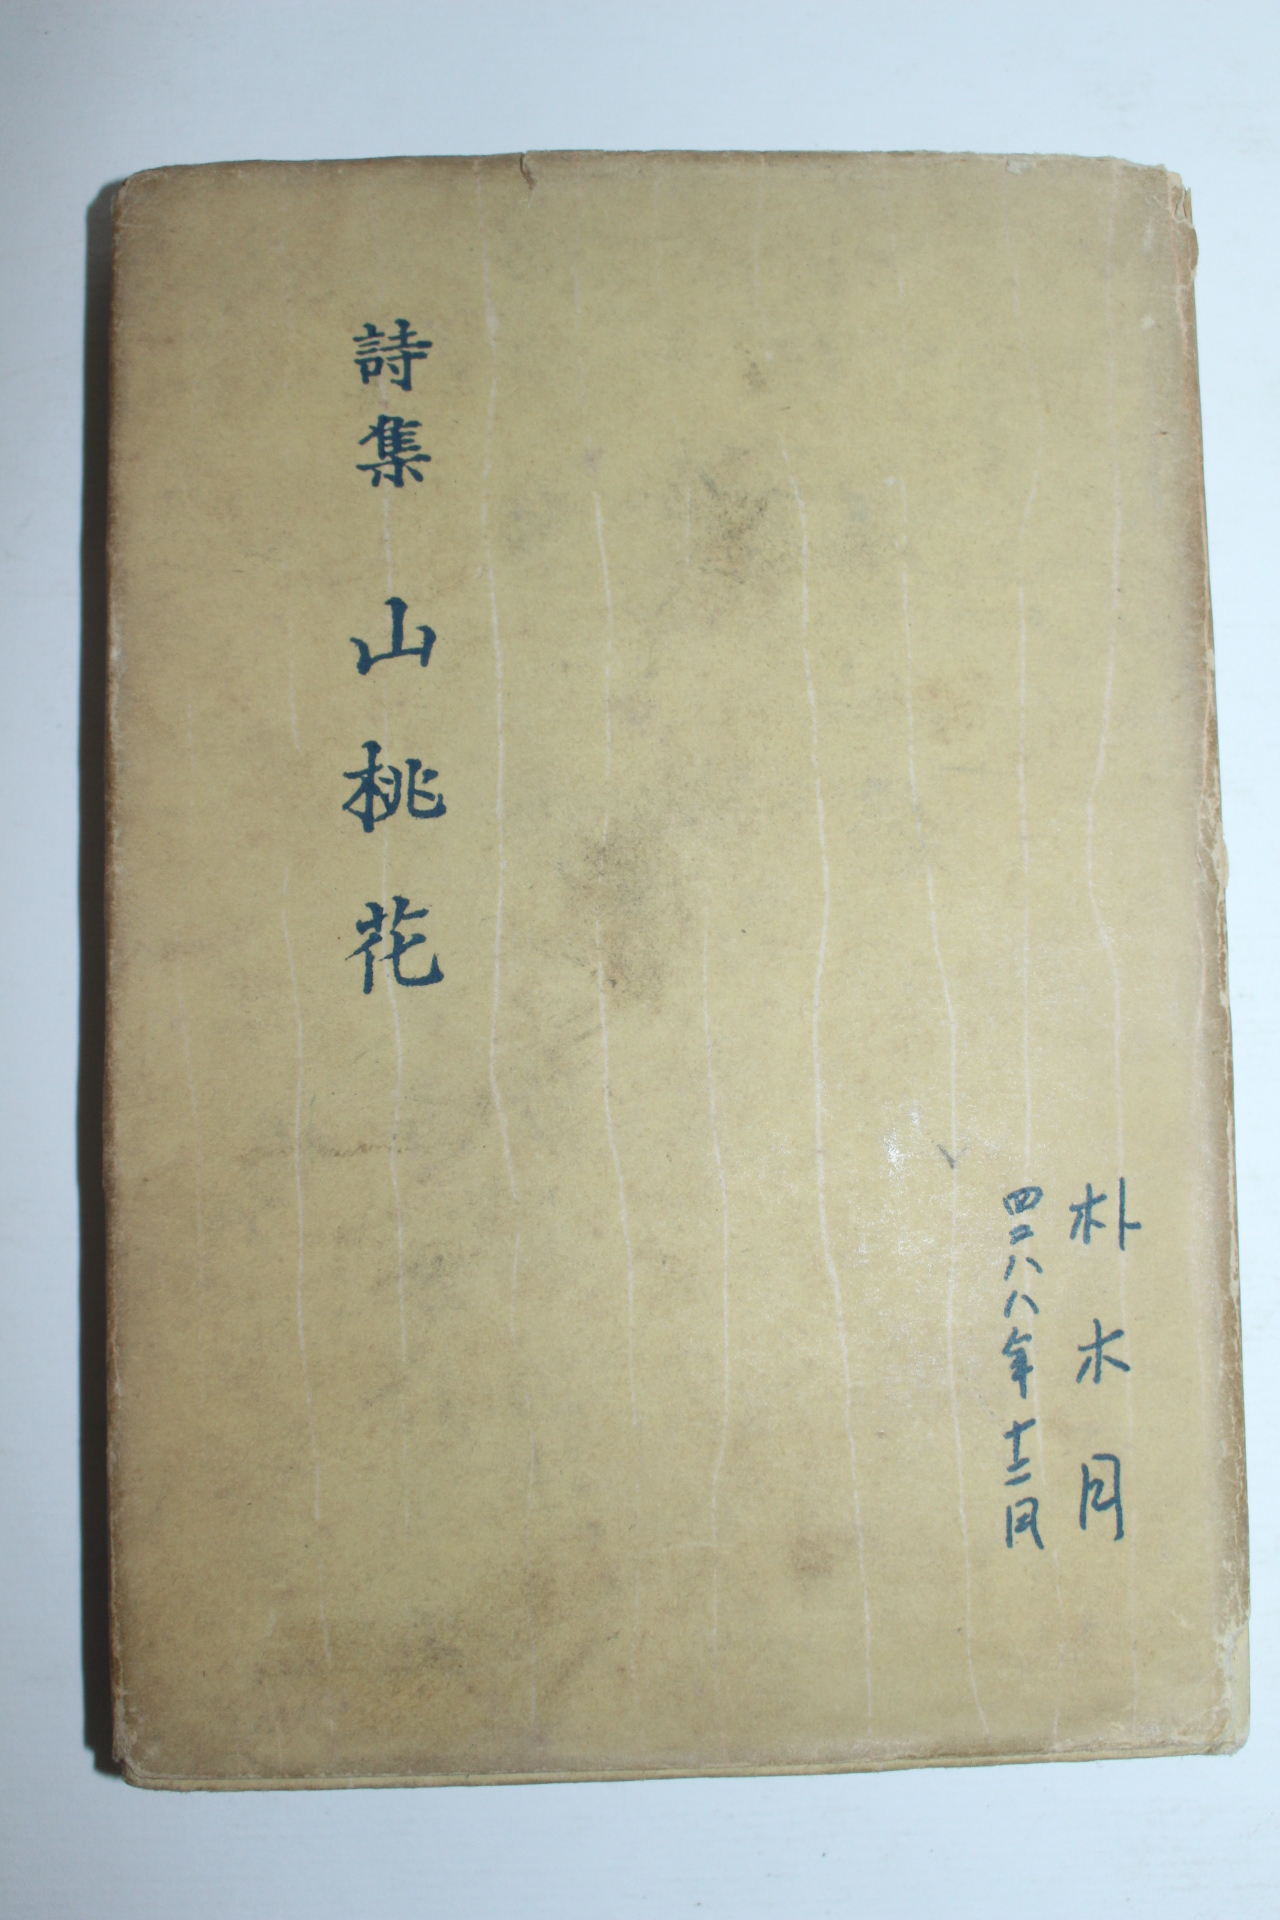 詩集 山桃花
朴木月
四二八八年十二月